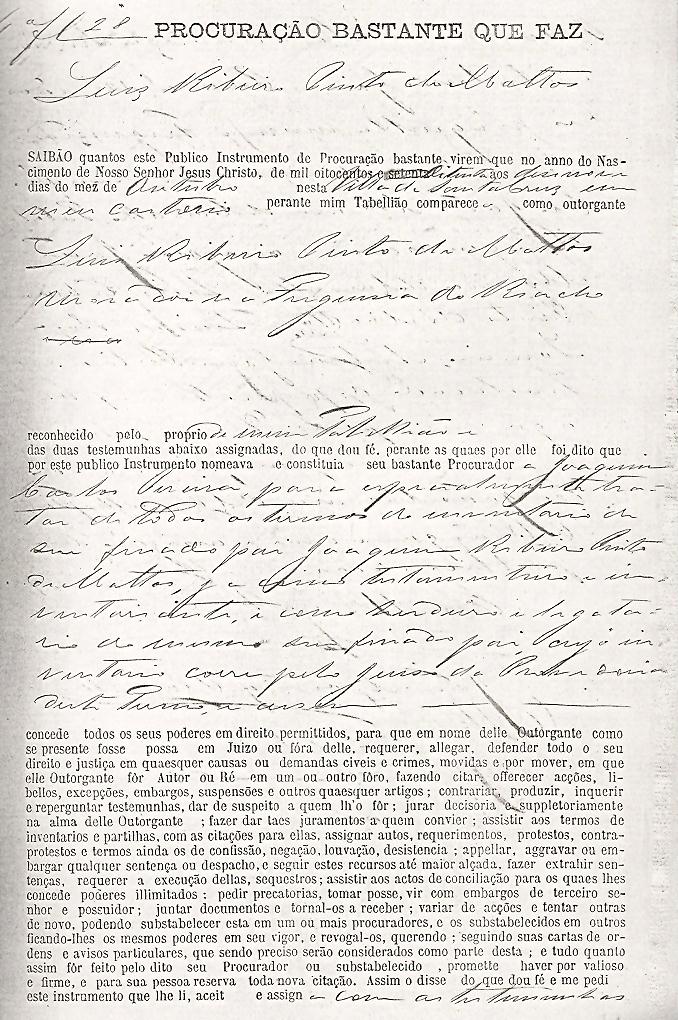 fl 28 PROCURAÇÃO BASTANTE QUE FAZ
Luiz Ribeiro Pinto de Mattos
SAIBÃO quantos este Publico Instrumento de Procuração bastante virem que no anno do Nas-
cimento de Nosso Senhor Jesus Christo, de mil oitocentos e setenta oitenta aos desenove
dias do mez de Outubro nesta Villa de Santa Cruz em
meu cartorio perante mim Tabellião comparece como outorgante
Luiz Ribeiro Pinto de Mattos
morador na Freguesia do Riacho
reconhecido pelo proprio de mim Tabellião e
das duas testemunhas abaixo assignadas, do que dou fé, perante as quaes por elle foi dito que
por este publico Instrumento nomeava e constituia seu bastante Procurador a Joaquim
Carlos Pereira, para especialmente tra-
tar de todos os termos do inventario de
seu finado pai Joaquim Ribeiro Pinto
de Mattos, ja como testamenteiro e in-
ventariante, e como herdeiro e legata-
rio do mesmo seu finado pai, cujo in-
ventario corre pelo Juiso da Provedoria
deste Termo, e assim
concede todos os seus poderes em direito permittidos, para que em nome delle Outorgante como
se presente fosse possa em Juizo ou fóra delle, requerer, allegar, defender todo o seu
direito e justiça em quaesquer causas ou demandas civeis e crimes, movidas e por mover, em que
elle Outorgante fôr Autor ou Ré em um ou outro fôro, fazendo citar, offerecer acções, li-
bellos, excepções, embargos, suspensões e outros quaesquer artigos; contrariar, produzir, inquerir
e reperguntar testemunhas, dar de suspeito a quem lh'o fôr; jurar decisoria e suppletoriamente
na alma delle Outorgante ; fazer dar taes juramentos a quem convier; assistir aos termos de
inventarios e partilhas, com as citações para ellas, assignar autos, requerimentos, protestos, contra-
protestos e termos ainda os de confissão, negação, louvação, desistencia; appellar, aggravar ou em-
bargar qualquer sentença ou despacho, e seguir estes recursos até maior alçada, fazer extrahir sen-
tenças, requerer a execução dellas, sequestros; assistir aos actos de conciliação para os quaes lhes
concede poderes illimitados: pedir precatorias, tomar posse, vir com embargos de terceiro se-
nhor e possuidor; juntar documentos e tornal-os a receber; variar de acções e tentar outras
de novo, podendo substabelecer esta em um ou mais procuradores, e os substabelecidos em outros
ficando-lhes os mesmos poderes em seu vigor, e revogal-os, querendo; seguindo suas cartas de or-
dens e avisos particulares, que sendo preciso serão considerados como parte desta; e tudo quanto
assim fôr feito pelo dito seu Procurador ou substabelecido, promette haver por valioso
e firme, e para sua pessoa reserva toda nova citação. Assim o disse do que dou fé e me pedi
este instrumento que lhe li, aceit e assign a com as testemunhas